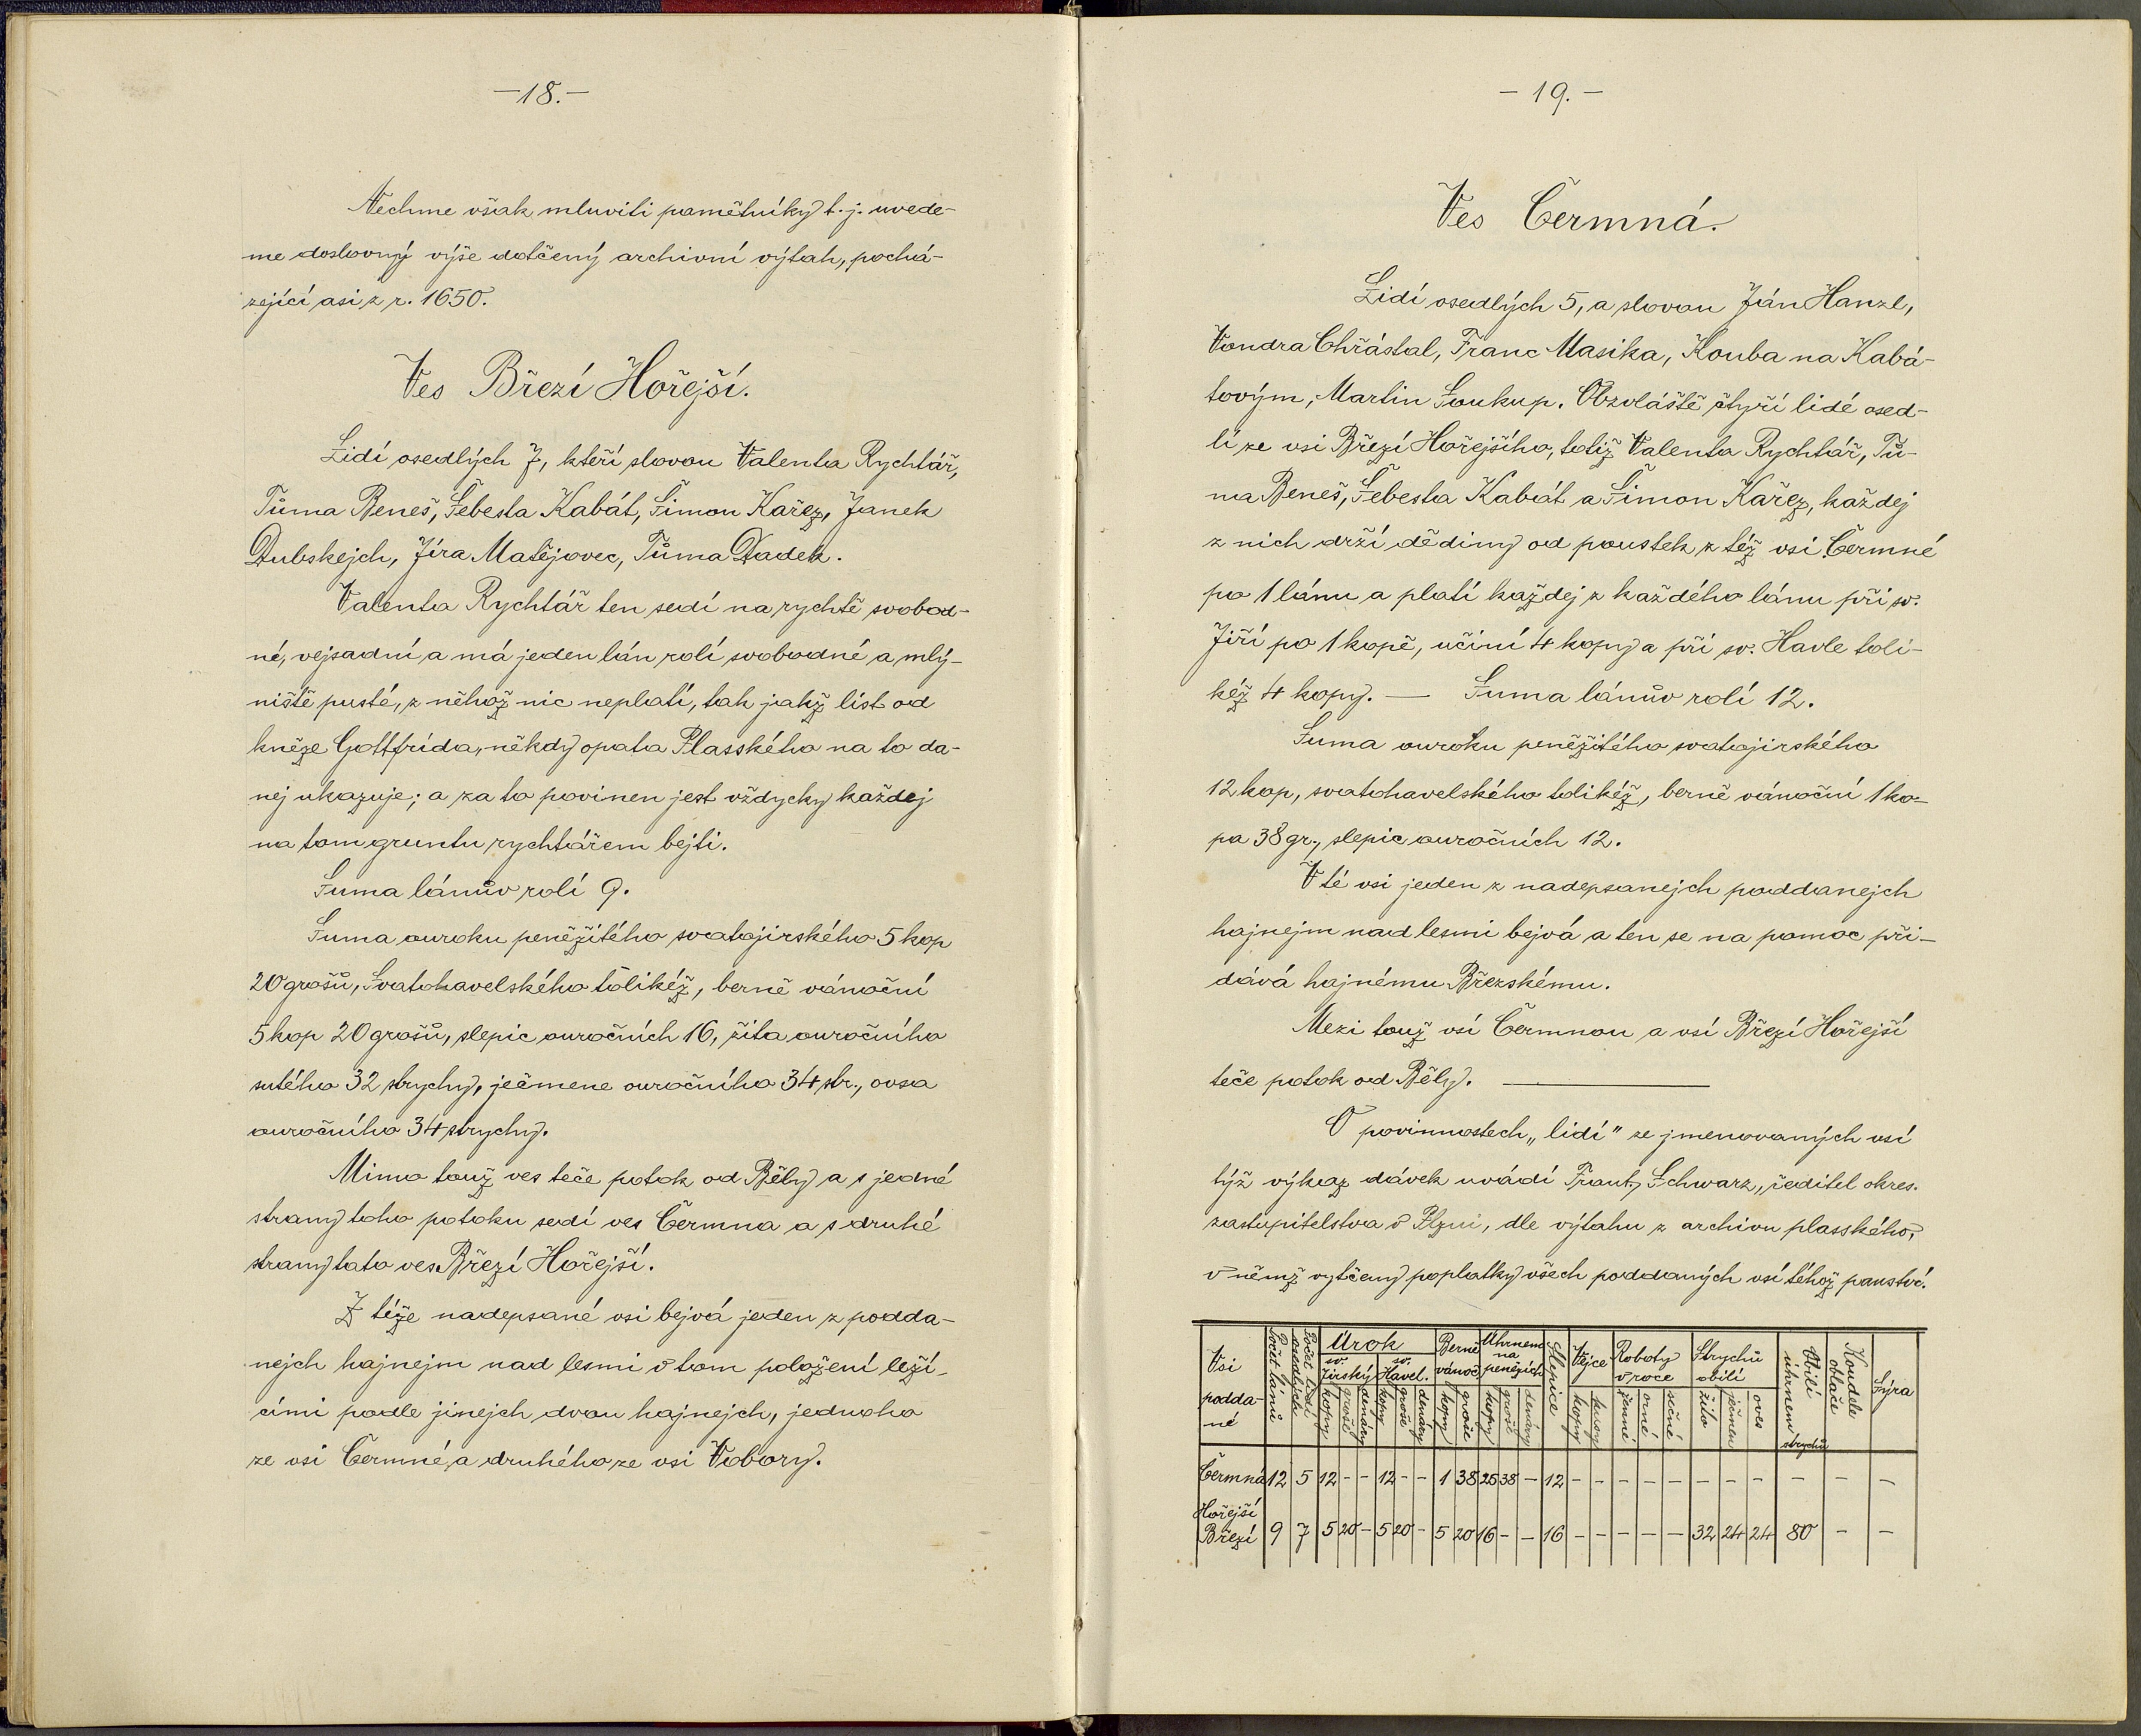 —18.—
Nechme však mluviti pamětníky t. j. uvede-
me doslovný výše dotčený archivní výtah, pochá-
zející asi z r. 1650.
Ves Březí Hořejší.
Lidí osedlých 7, kteří slovou Valenta Rychtář,
Tůma Beneš, Šebesta Kabát, Šimon Kařez, Janek
Dubskejch, Jíra Matějovec, Tůma Dadek.
Valenta Rychtář ten sedí na rychtě svobod-
né, vejsadní a má jeden lán rolí svobodné a mlý-
niště pusté, z něhož nic neplatí, tak jakž list od
kněze Gottfrída, někdy opata Plasského na to da-
nej ukazuje; a za to povinen jest vždycky každej
na tom gruntu rychtářem bejti.
Suma lánův rolí 9.
Suma ouroku peněžitého svatojirského 5 kop
20 grošů, Svatohavelského tolikéž, berně vánoční
5 kop 20 grošů, slepic ouročních 16, žita ouročního
sutého 32 strychy, ječmene ouročního 34 str., ovsa
ouročního 34 strychy.
Mimo touž ves teče potok od Běly a s jedné
strany toho potoku sedí ves Čermna a s druhé
strany tato ves Březí Hořejší.
Z téže nadepsané vsi bejvá jeden z podda-
nejch hajnejm nad lesmi v tom položení leží-
cími podle jinejch dvou hajnejch, jednoho
ze vsi Čermné, a druhého ze vsi Vobory.
— 19. —
Ves Čermná.
Lidí osedlých 5, a slovou Ján Hanzl,
Vondra Chřástal, Franc Masika, Kouba na Kabá-
tovým, Martin Soukup. Obzvláště čtyři lidé osed-
lí ze vsi Březí Hořejšího, totiž Valenta Rychtář, Tů-
ma Beneš, Šebesta Kabát a Šimon Kařez, každej
z nich drží dědiny od poustek z též vsi Čermné
po 1 lánu a platí každej z každého lánu při sv.
Jiří po 1 kopě, učiní 4 kopy a při sv. Havle toli-
kéž 4 kopy. — Suma lánův rolí 12.
Suma ouroku peněžitého svatojirského
12 kop, svatohavelského tolikéž, berně vánoční 1 ko-
pa 38 gr., slepic ouročních 12.
V té vsi jeden z nadepsanejch poddanejch
hajnejm nad lesmi bejvá a ten se na pomoc při-
dává hajnému Březskému.
Mezi touž vsí Čermnou a vsí Březí Hořejší
teče potok od Běly. —
O povinnostech „lidí" ze jmenovaných vsí
týž výkaz dávek uvádí Frant. Schwarz, ředitel okres.
zastupitelstva v Plzni, dle výtahu z archivu plasského,
v němž vytčeny poplatky všech poddaných vsí téhož panství.
Vsi poddané | Počet lánů | Počet lidí osedlých | Úrok | Berně vánoč. | Úhrnem na penězích | Slepice | Vejce | Roboty v roce | Strychů obilí | Obilí úhrnem strychů | Koudele otlače | Sýra
sv. Jirský | sv. Havel.
kopy | groše | denáry | kopy | groše | denáry | kopy | groše | kopy | groše | denáry | kopy | kusy | ženné | orné | sečné | žito | ječmen | oves
Čermná 12 5 12 - - 12 - - 1 38 25 38 - 12 - - - - - - - - - - -
Hořejší
Březí 9 7 5 20 - 5 20 - 5 20 16 - - 16 - - - - - 32 24 24 80 - -